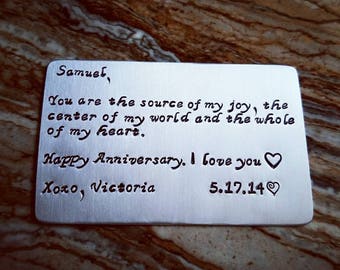 Samuel,
You are the source of my joy, the
center of my world and the whole
of my heart.
Happy Anniversary. I love you♡
Xoxo, Victoria 5.17.14♡